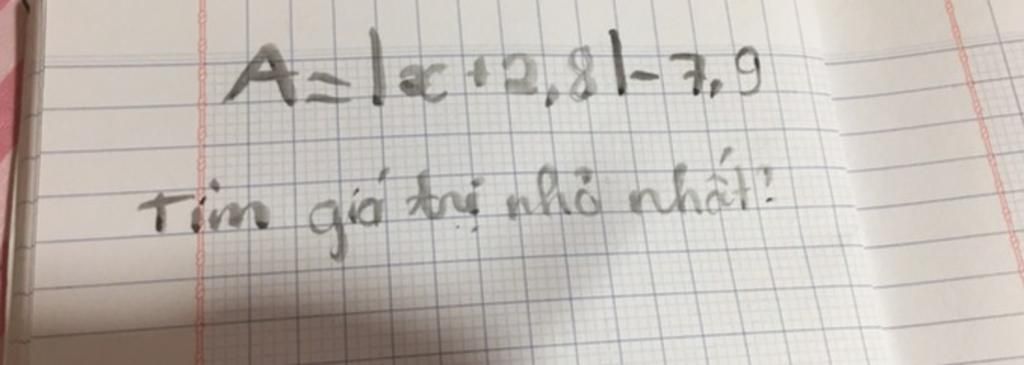 A = |x + 2,8| - 7,9
Tìm giá trị nhỏ nhất?